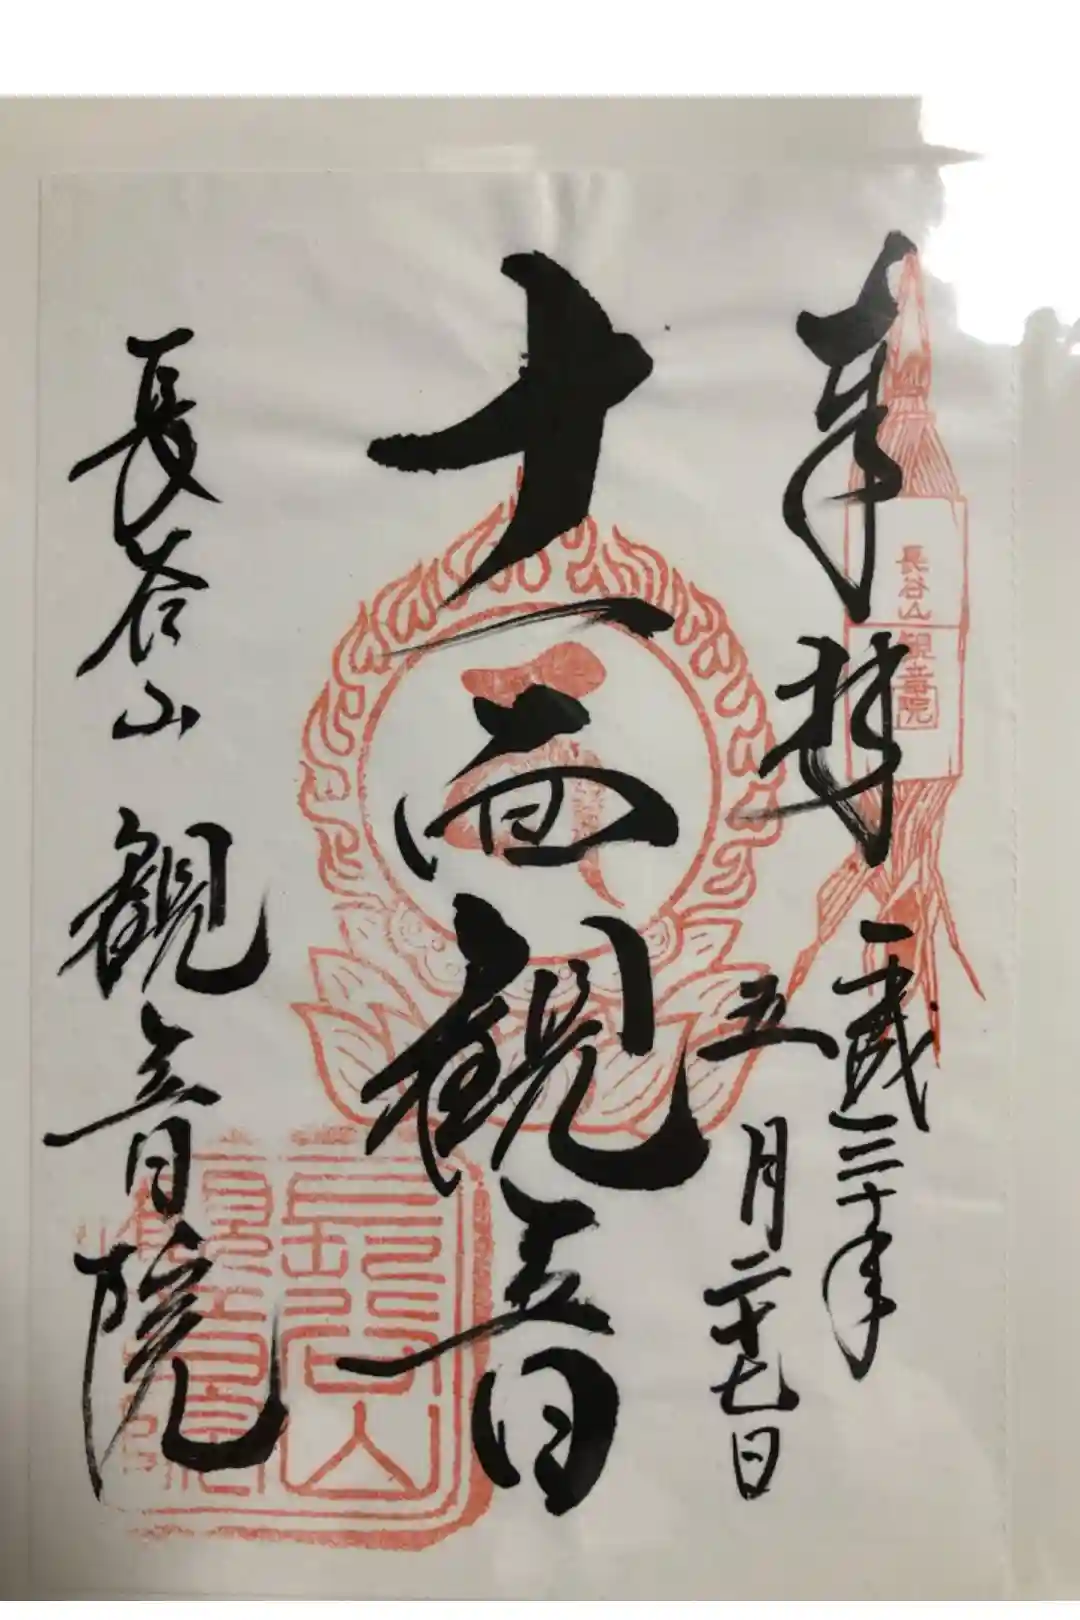 奉拝
平成三十年
五月二十七日
長谷山
観音院
十一面観音
長谷山
観音院
長谷山
観音院